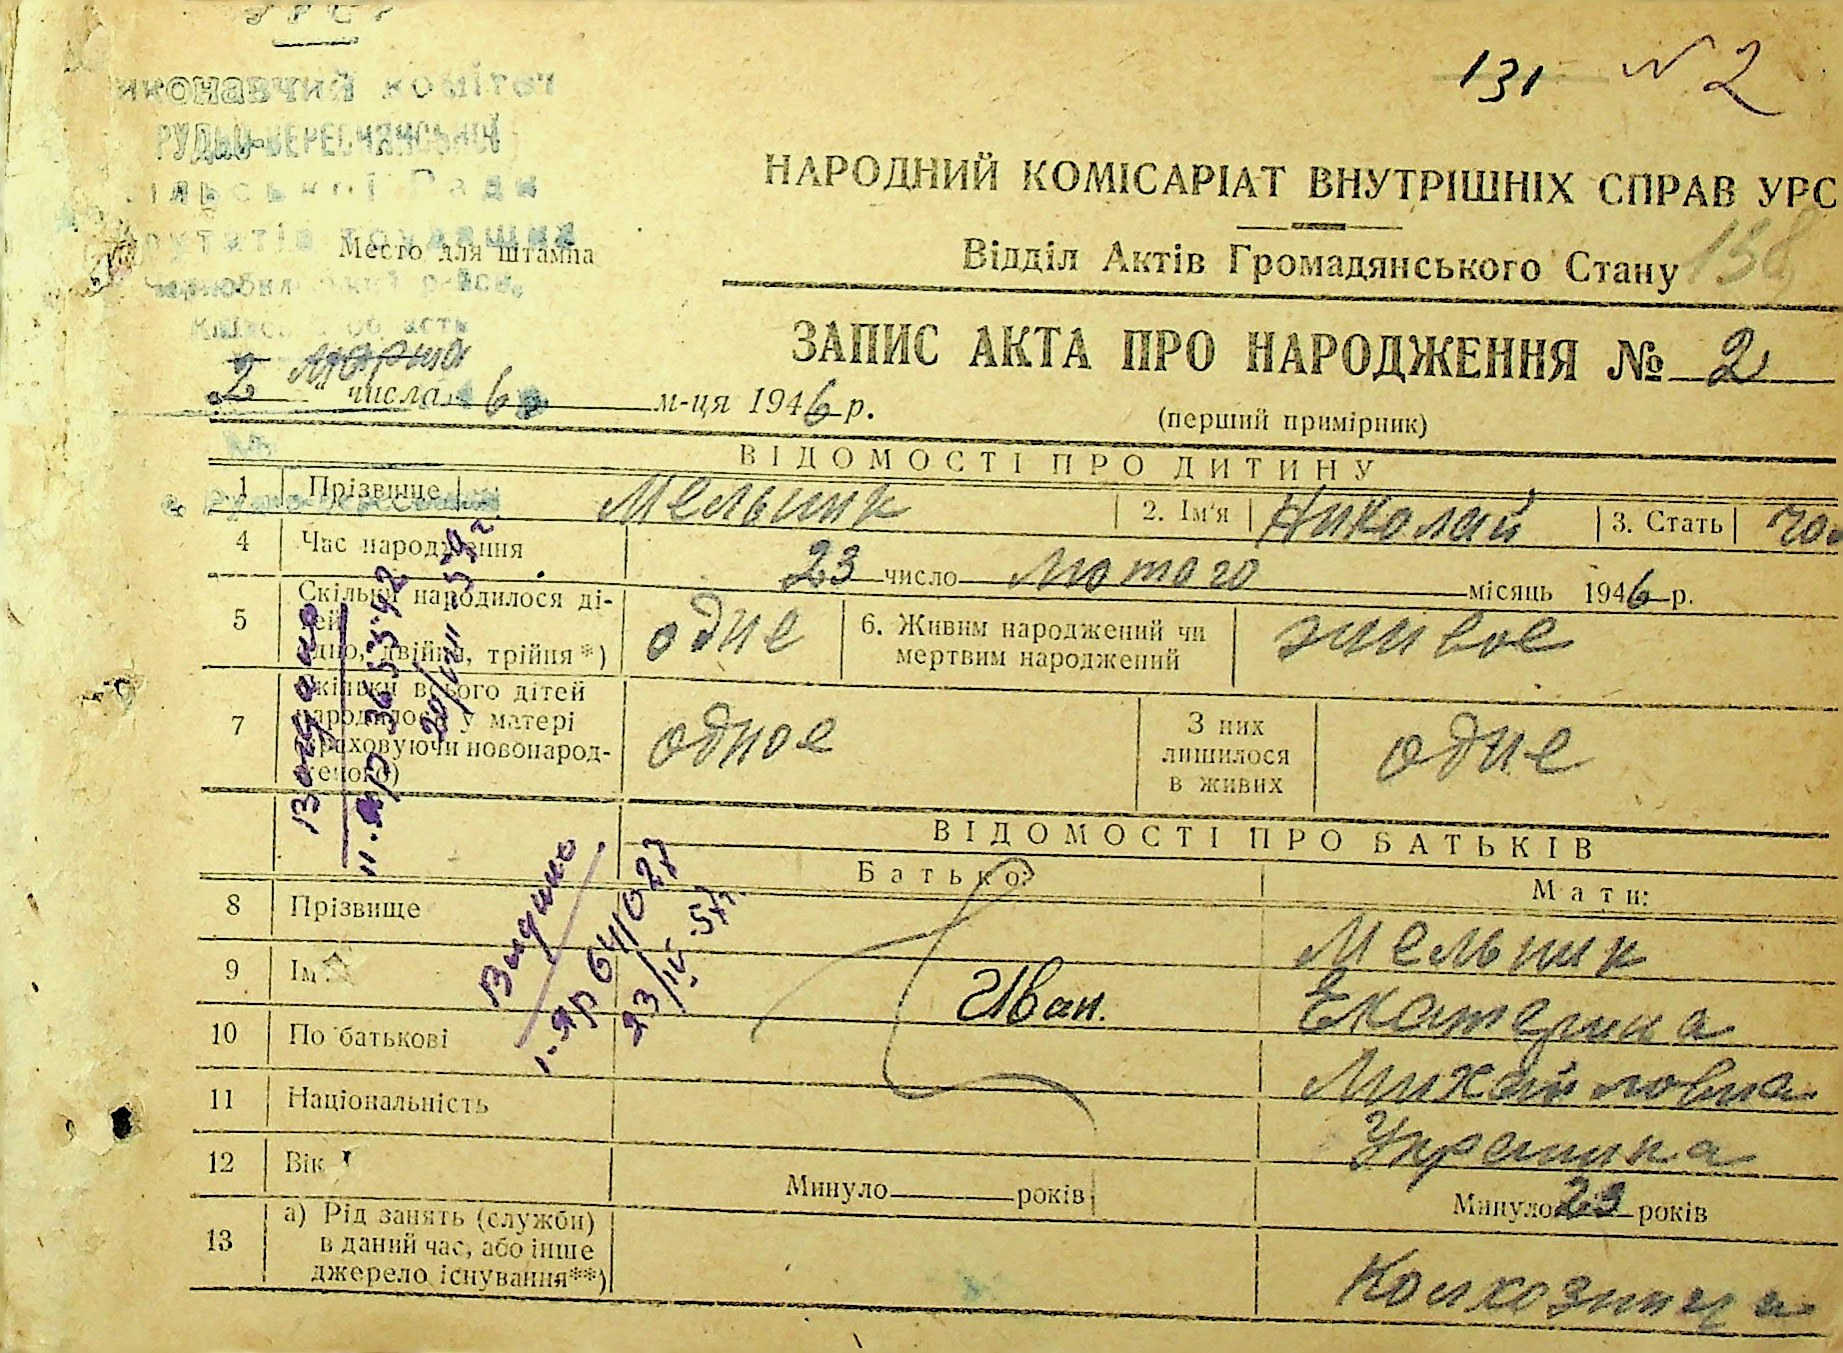 УРСР
131 N 2
иконавчий комітет
РУДНО-ВЕРЕСНЯНСЬКОЇ
ільської Ради
НАРОДНИЙ КОМІСАРІАТ ВНУТРІШНІХ СПРАВ УРС
Место для штампа
Відділ Актів Громадянського Стану 158
ЗАПИС АКТА ПРО НАРОДЖЕННЯ № 2
2 марта
числа 6 м-ця 1946 р.
(перший примірник)
ВІДОМОСТІ ПРО ДИТИНУ
1 Прізвище Мельник 2. Ім'я Николай 3. Стать чол
4 Час народження 23 число лютого місяць 1946 р.
5 Скільки народилося ді-
тей
(одно, двійня, трійня*) одне 6. Живим народжений чи
мертвим народжений живое
7 Скільки всього дітей
народилося у матері
(враховуючи новонарод-
женого) одное З них
лишилося
в живих одне
Видано
II-яр 365542
20/VII-57 г.
ВІДОМОСТІ ПРО БАТЬКІВ
Батько: Мати:
8 Прізвище Мельник
9 Ім'я Иван. Екатерина
10 По батькові Михайловна
11 Національність Украинка
12 Вік Минуло роківі Минуло 23 років
13 а) Рід занять (служби)
в даний час, або інше
джерело існування**) Колхозница
Видано
I-яр 641027
23/IV-57г.